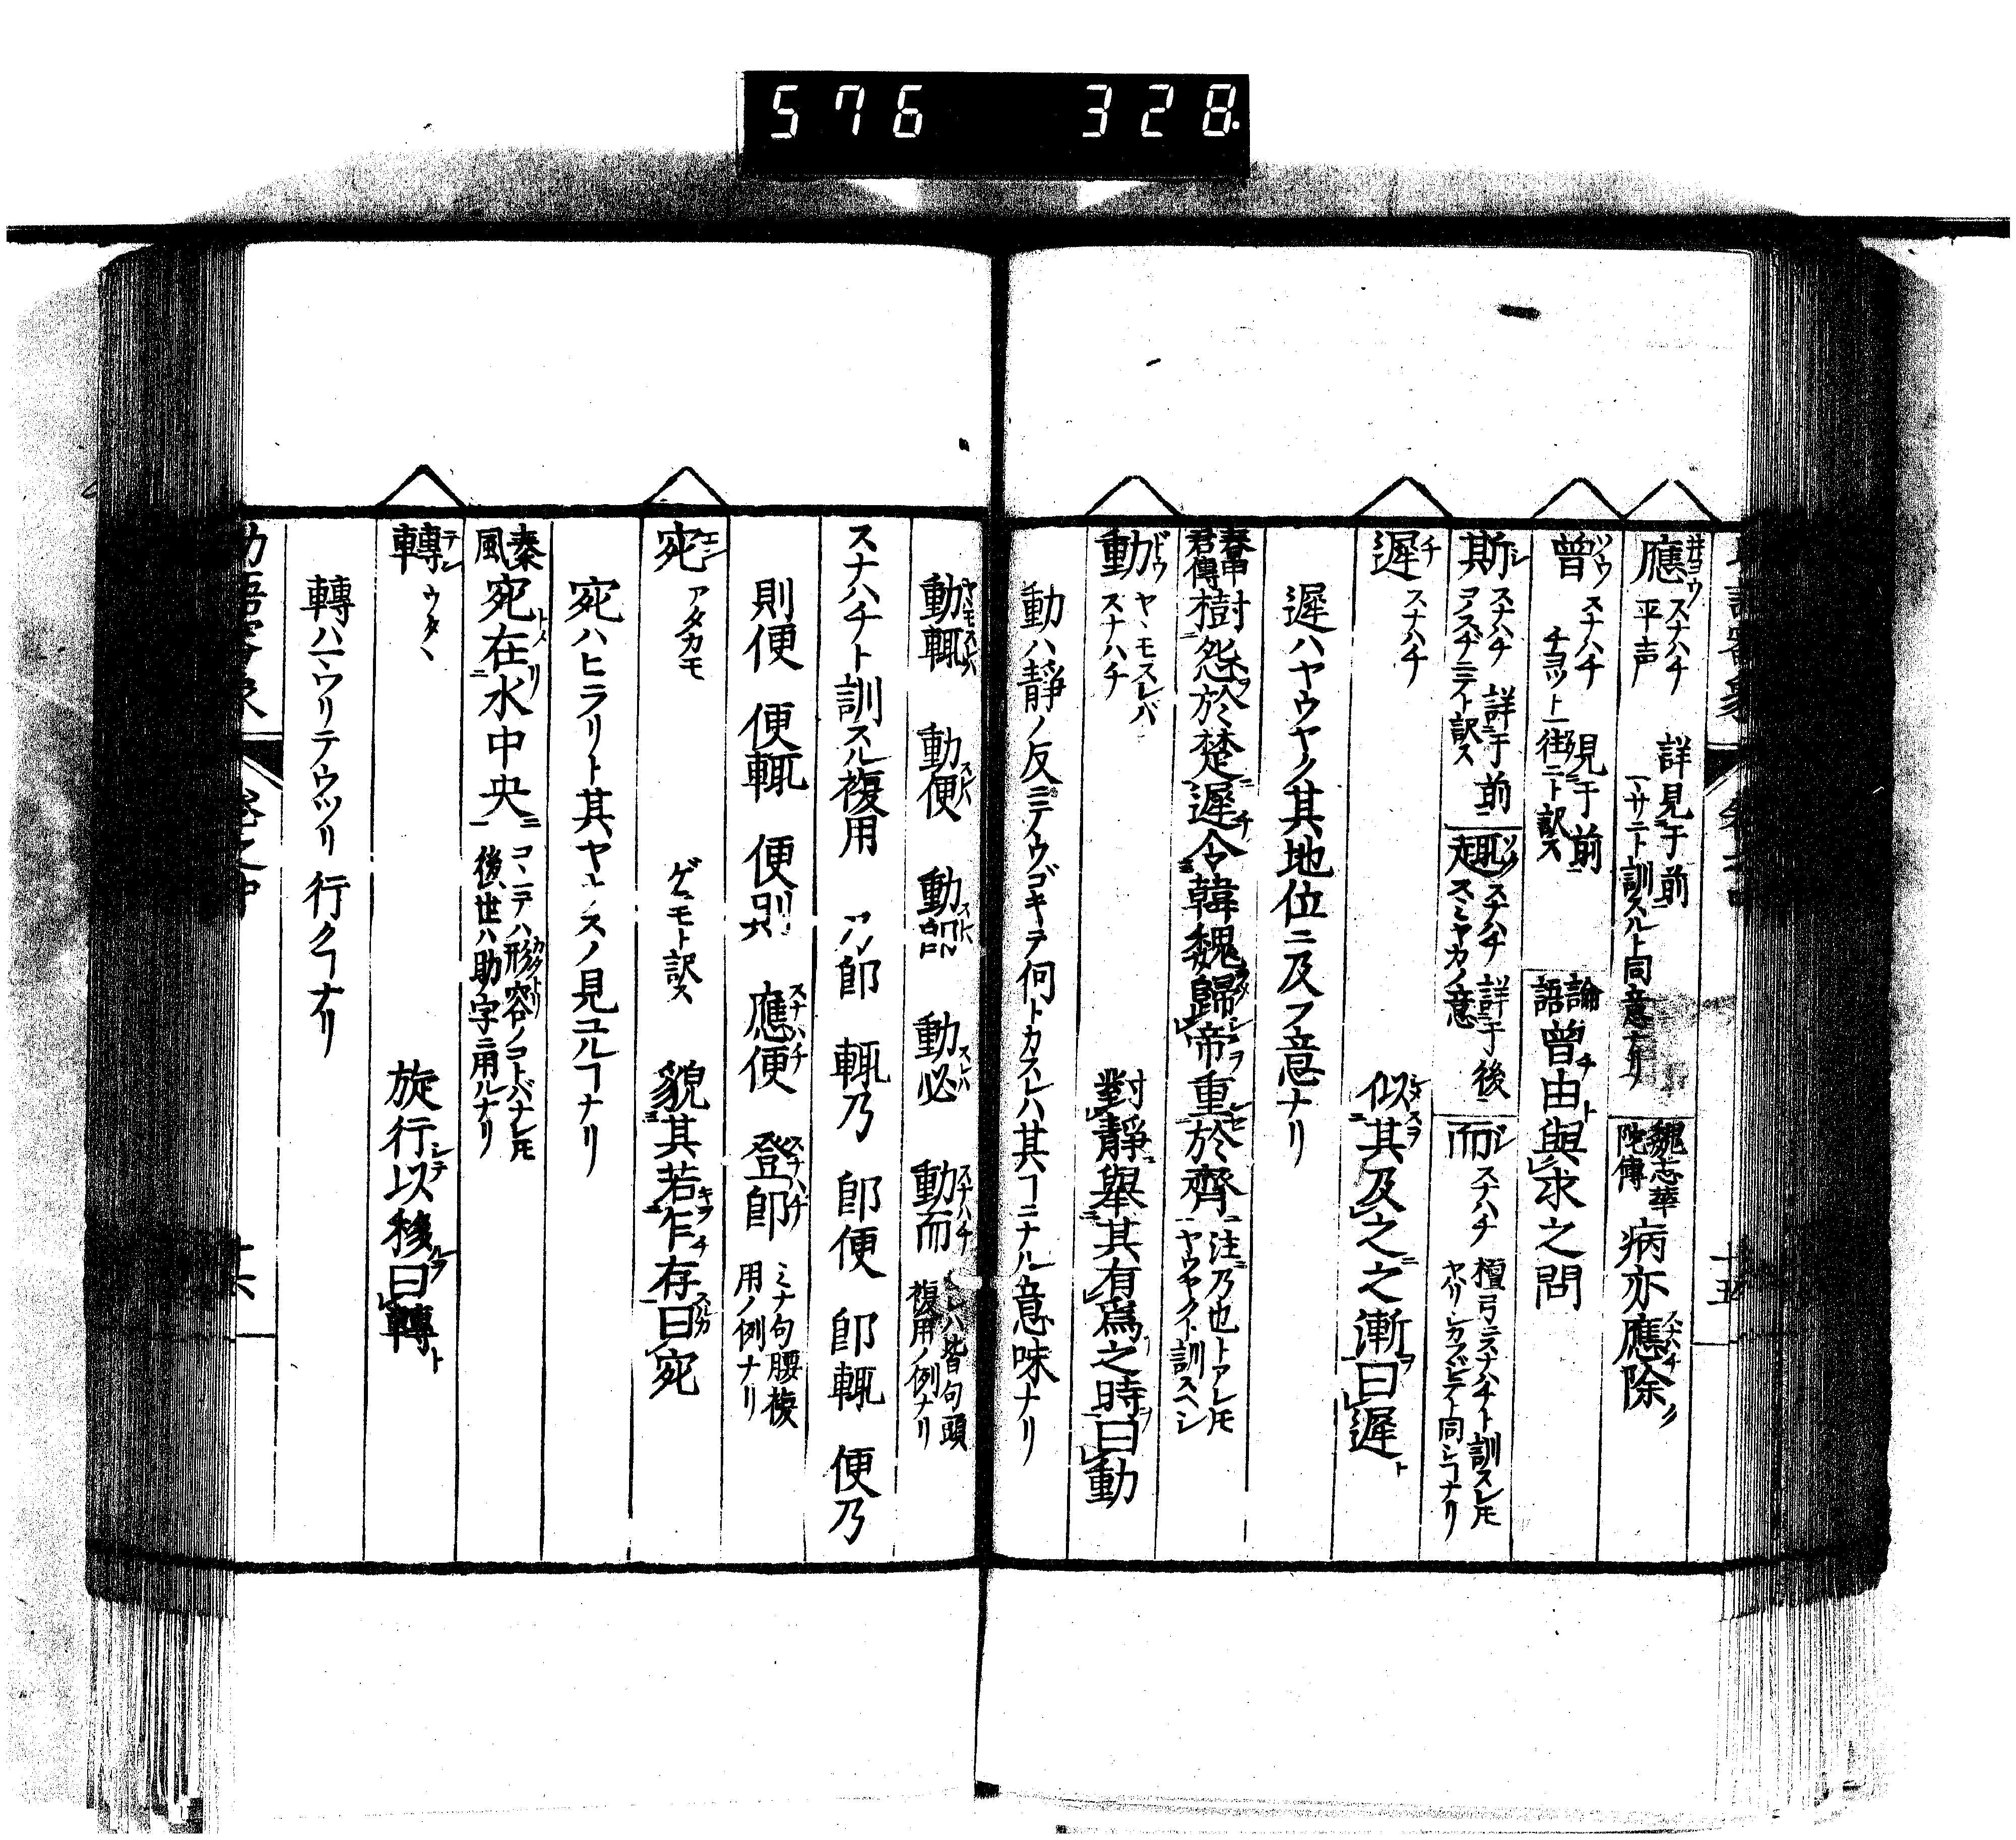 576 328.
應 スナハチ 平声 詳見于前 マサニト訓スルト同意ナリ 魏志華陀傳 病亦應除
曾 ソウ スナハチ チヨツト 見于前 一街ニト訳ス 論語 曾由與求之問
斯 シ スナハチ 詳于前 ヲスヂニテイト訳ス 趣 スナハチ 詳于後 スミヤカノ意 而 スナハチ 檀弓ニスナハチト訓スレ𪜈 ヤハリシカフシテト同シヿナリ
遲 チ スナハチ 似其及之之漸曰遲
遲ハヤウヤク其地位ニ及フ意ナリ
春申君傳 樹怨於楚遲令韓魏歸帝重於齊 注乃也トアレ𪜈 ヤウヤクト訓スヘシ
動 ドウ ヤヽモスレバ スナハチ 對靜舉其有爲之時曰動
動ハ靜ノ反ニテウゴキテ何トカスレハ其ヿニナル意味ナリ
動輒 動便 動即 動必 動而 コレハ皆句頭複用ノ例ナリ
スナハチト訓スル複用 乃即 輒乃 即便 即輒 便乃
則便 便輒 便則 應便 登即 ミナ句腰複用ノ例ナリ
宛 エン アタカモ ゲニモト訳ス 貌其若乍存曰宛
宛ハヒラリト其ヤウスノ見ユルヿナリ
秦風 宛在水中央 コヽニテハ形容ノコトバナレ𪜈 後世ハ助字ニ用ルナリ
轉 テン ウタヽ 旋行以移曰轉
轉ハウツリテウツリ行クヿナリ